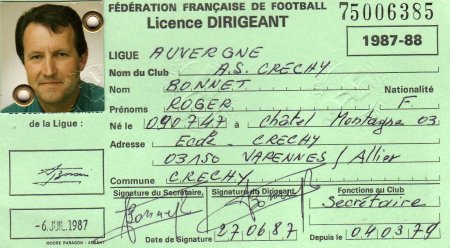 FÉDÉRATION FRANÇAISE DE FOOTBALL
Licence DIRIGEANT
75006385
1987-88
LIGUE AUVERGNE
Nom du Club A.S. CRECHY
Nom BONNET
Nationalité
Prénoms ROGER F.
Né le 090747 à Châtel Montagne 03
Adresse Ecole _ CRECHY
03150 VARENNES / Allier
Commune CRECHY
de la Ligue :
Signature du Secrétaire, Signature du Dirigeant, Fonctions au Club
Bonnet Bonnet Secrétaire
-6 JUIL 1987
Date de Signature 27.06.87 Depuis le 04.03.79
MOORE PARAGON -